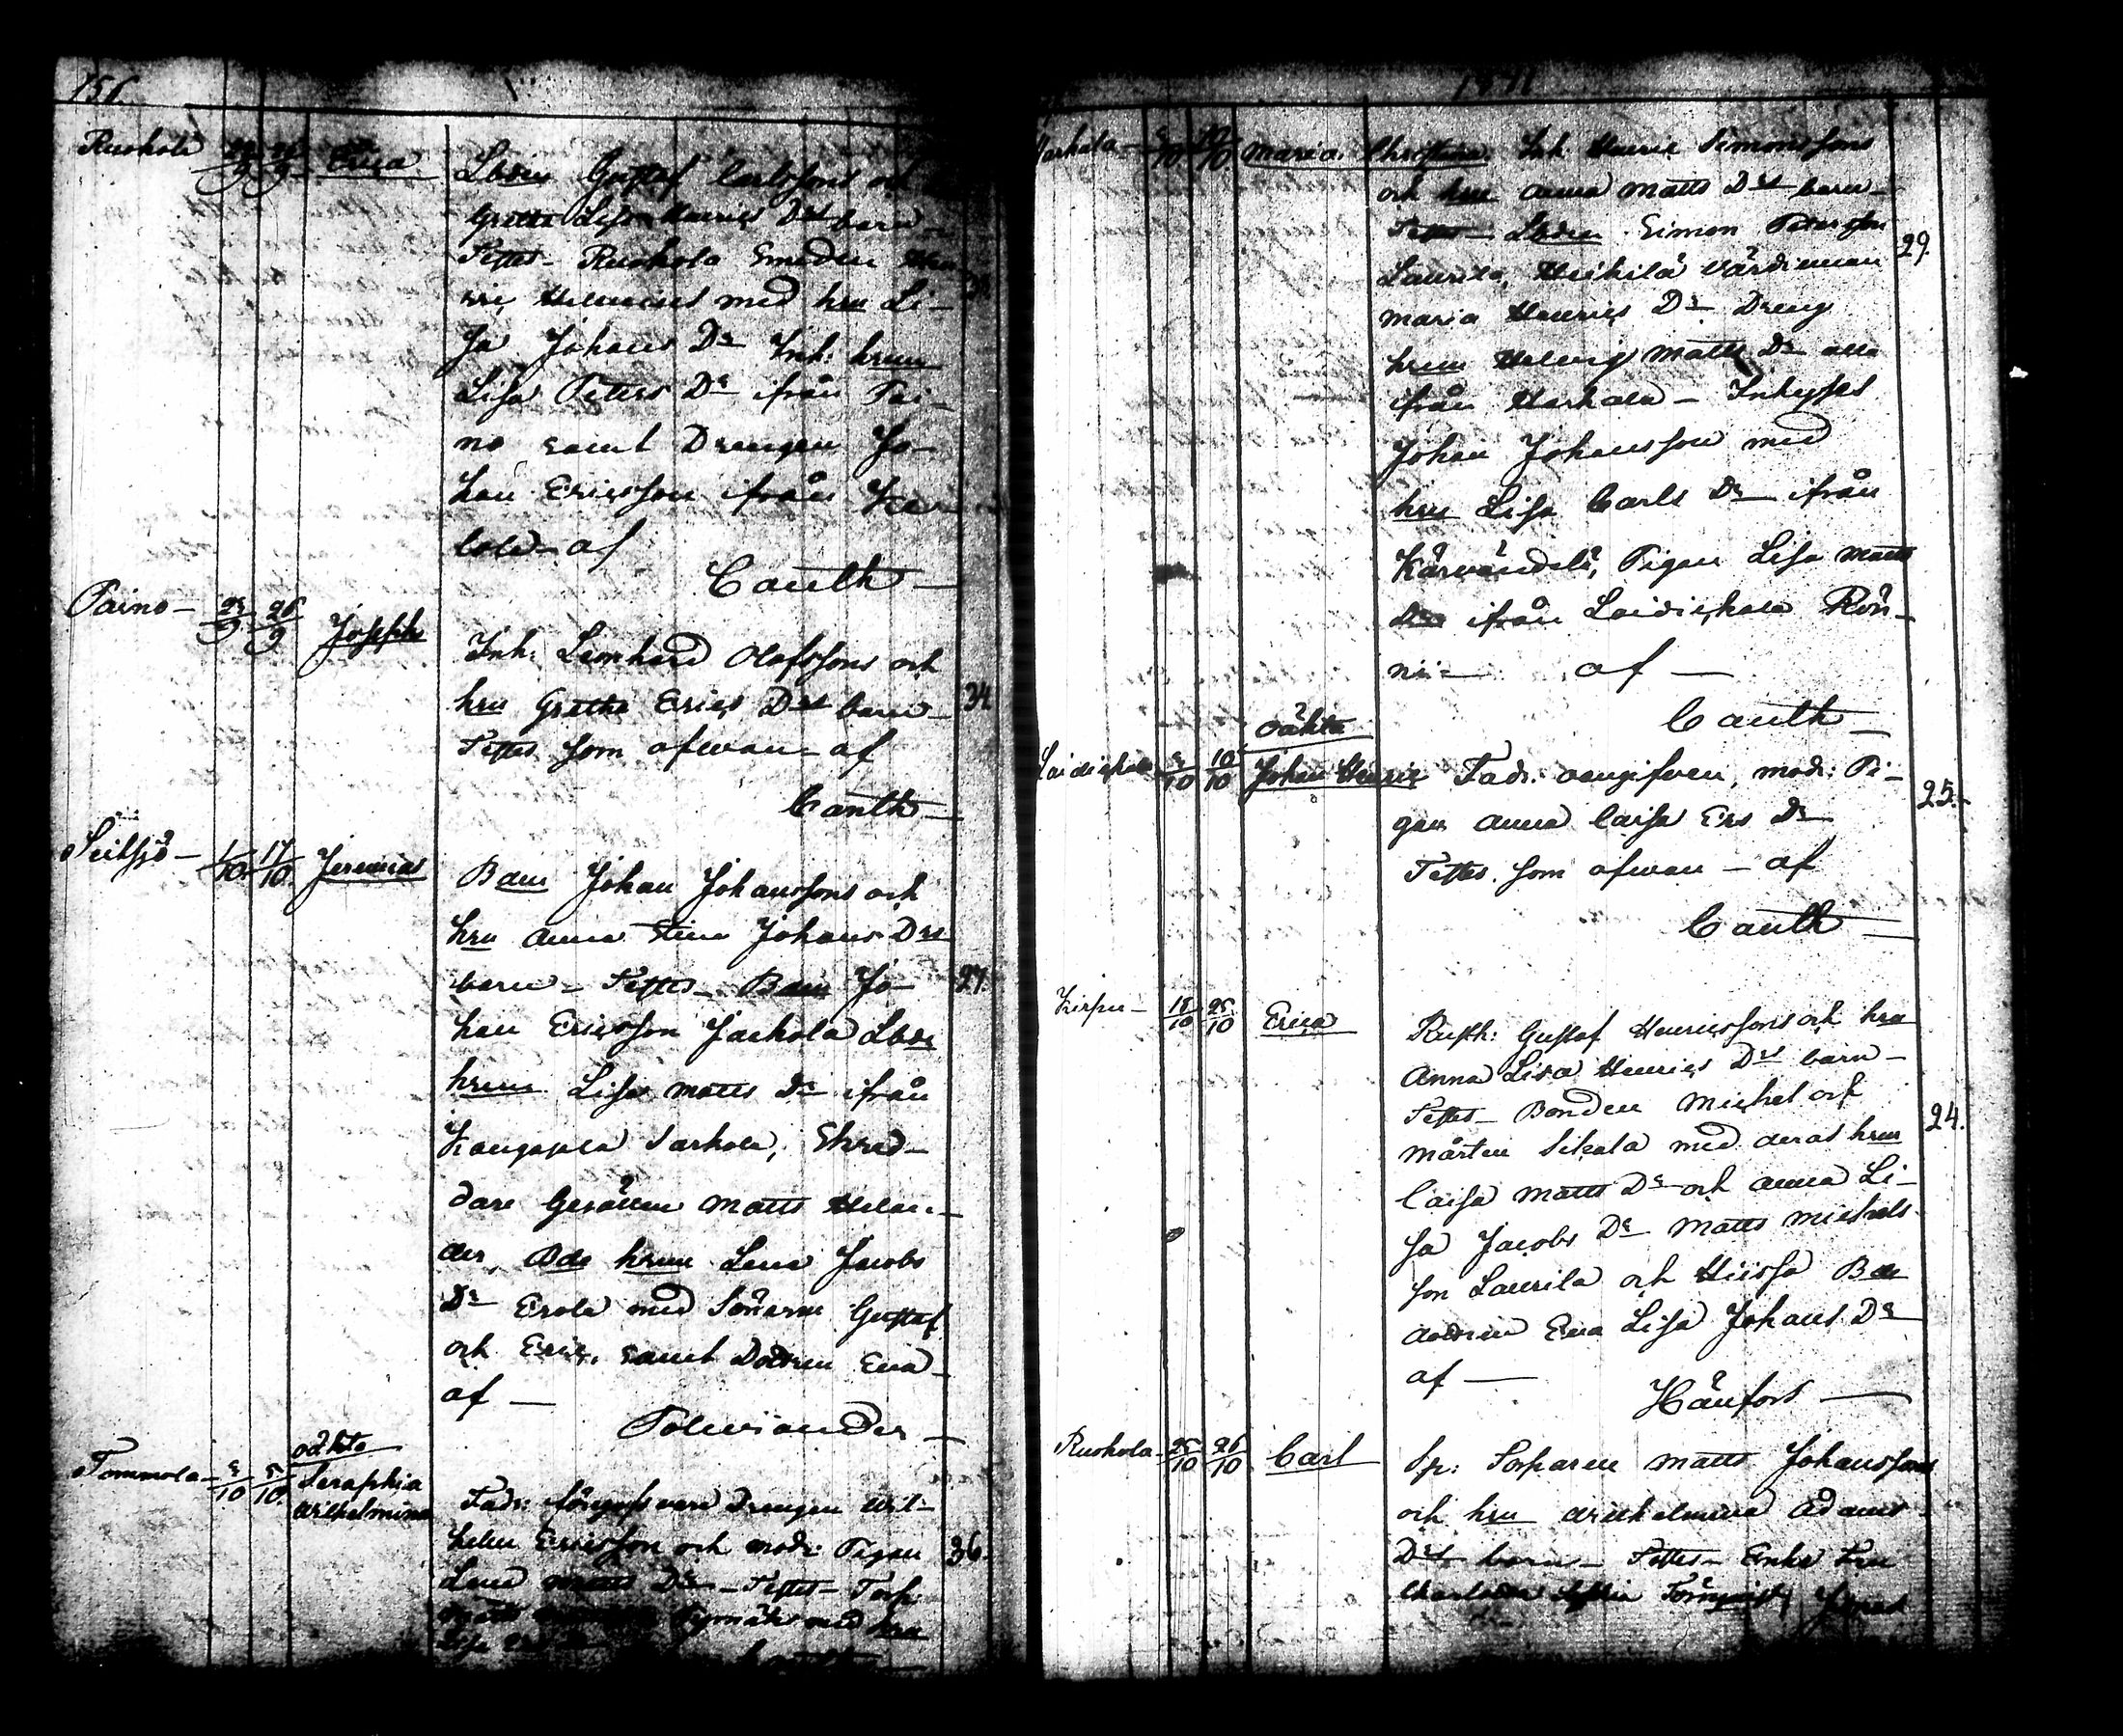 156.
Ruohola Erica
Lbden Gustaf Carlssons och
Gretha Lisa Henrics Drs barn
Testes - Ruohola Smeden Hen-
ric Helenius med hru Li-
sa Johans Dr Inh: hrun
Lisa Peters Dr ifrån Pai-
no samt Drengen Jo-
han Ericsson ifrån
lola - af
Canth -
Paino - 26/9 Joseph
Inh: Leonhard Olofssons och
hru Gretha Erics Drs barn - 34
Testes som ofwan - af
Canth -
Seitsjö - 1/10 17/10 Jeremias
Bdn Johan Johanssons och
hru Anna Stina Johans Drs
barn - Testes - Bdn Jo- 27.
han Ericsson Jaskola Lbds
hrun Lisa Matts Dr ifrån
Kangasala Sarkola, Skred-
dare Gesällen Matts Helan-
der, Bds hrun Lena Jacobs
Dr Erola med Sönerne Gustaf
och Eric, samt Dottren Eva -
af -
Polviander -
oäkta
Tommola - 5/10 Seraphia
Wilhelmina
Fadr: föregifs vara Drengen Wil-
helm Ericsson och modr: Pigan 36.
Lena Matts Dr - Testes - Torp:
Matts med hru
Lisa
1841
Harhala - Maria Christina Inh. Henric Simonssons
och hru Anna Matts Drs barn -
Testes - Lbden Simon Petersson 29.
Laurila, Heikilä värdinnan
Maria Henrics Dr Dreng
hrun Helvig Matts Dr alla
ifrån Harhala - Inhyses
Johan Johansson med
hru Lisa Carls Dr ifrån
Kärvändelä, Pigan Lisa Matts
dr ifrån Laidiskala Rön-
ni - af -
Canth -
oäkta
Laidiskala 10/10 Johan Henric Fadr: oangifven, modr: Pi- 25.-
gan Anna Caisa Ers Dr -
Testes som ofwan - af
Canth -
Kirpu - 18/10 25/10 Erica
Rusth: Gustaf Henricssons och hru
Anna Lisa Henrics Drs barn -
Testes - Bonden Michel och 24.
Mårten Sikala med deras hrur
Caisa Matts Dr och Anna Li-
sa Jacobs Dr Matts Michels
son Laurila och Hiirsa Bde
dottren Eva Lisa Johans Dr
af -
Hänfors -
Ruohola - 25/10 26/10 Carl
Sp: Torparen Matts Johanssons
och hru Wilhelmina Adams
Drs barn - Testes - Enke Fru
Charlotta Sophia Törnqvist,